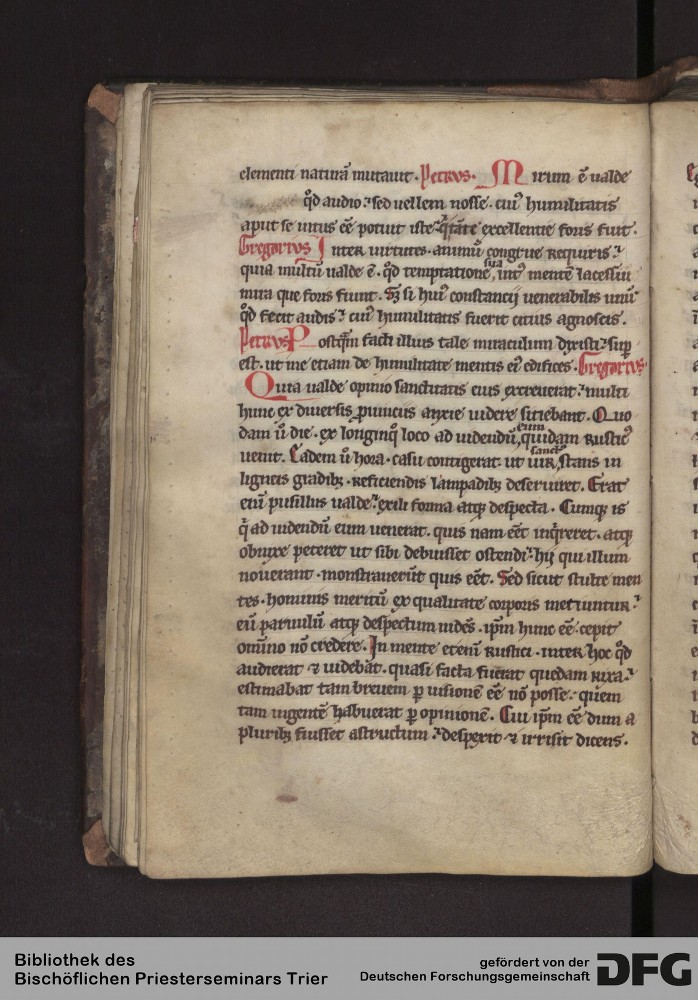 elementi naturā mutauit. Petrus. Mirum ē ualde
qd̄ audio. sed uellem nosse. cui9 humilitatis
aput se uirus eē potuit iste q̄ tāte excellentie foris fuit.
Gregorius Inter uirtutes. animū congrue requiris.
quia multū ualde ē. qd̄ temptatione sua int9 mentē lacessiū
mira que foris fiunt. Sʒ si hui9 constancij uenerabilis unū
qd̄ fecit audis. cui9 humilitatis fuerit citius agnoscis.
Petrus Postq̄m facti illius tale miraculum dyxisti. sup̄
est. ut me etiam de humilitate mentis ei9 edifices. Gregorius
Quia ualde opinio sanctitatis eius excreuerat. multi
hunc ex diuersis p̱uinciis anxie uidere sitiebant. Quo
dam u̇ die. ex longinq̊ loco ad uidendū eum quidam rustic9
uenit. Eadem u̇ hora. casu contigerat ut uir sanct9 stans in
ligneis gradibʒ. reficiendis lampadibʒ deseruiret. Erat
eni̅ pusillus ualde. exili forma atqʒ despecta. Cumqʒ is
q̇ ad uidendū eum uenerat. quis nam eēt inq̇reret. atqʒ
obnixe peteret ut sibi debuisset ostendi. hij qui illum
nouerant. monstrauerūt quis eēt. Sed sicut stulte men
tes. hominis meritū ex qualitate corporis metiuntur.
eū paruulū atqʒ despectum uidēs. ip̄m hunc eē. cepit
omīno nō credere. In mente eteni̅ rustici. inter hoc qd̄
audierat ⁊ uidebāt. quasi facta fuerat quedam rixa.
estimabat tam breuem p̱ uisionē eē nō posse. quem
tam ingentē habuerat p̱ opinionē. Cui ip̄m eē dum a
pluribʒ fuisset astructum. despexit ⁊ irrisit dicens.
Bibliothek des
Bischöflichen Priesterseminars Trier
gefördert von der
Deutschen Forschungsgemeinschaft DFG